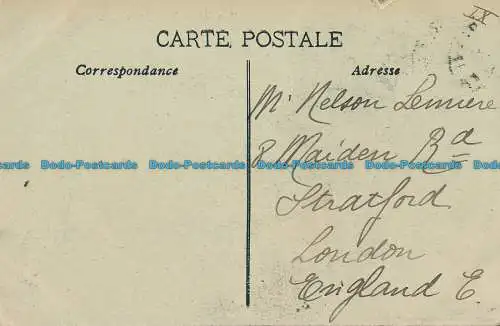 IX
CARTE POSTALE
Correspondance
Adresse
Mr Nelson Lemiere
2 Maiden Rd
Dodo-Postcards Dodo-Postcards Dodo-Postcards Dodo-Postcards Dodo-Postcards Dodo-Postcards
Stratford
London
England E.